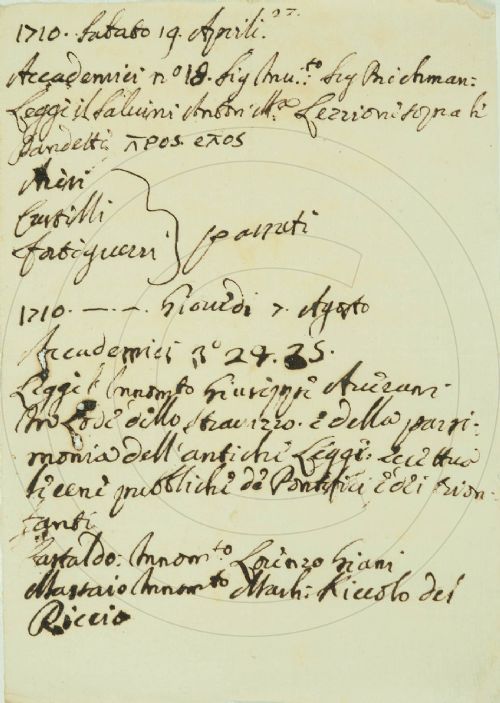 1710. Sabato 19. Aprile.
Accademici n° 18. Sig Inn.to Sig Richman:
Leggè il Salvini Anton M.a Lezzioni sopra li
Pandetti προς
Averi
Castelli
Fortiguerri } passati
1710. — . — . Giovedi 7. Agosto
Accademici n° 24. 25.
Leggè l'Innom.to Giuseppe Averani
In Lode dello Stravizzo. e della parsi:
monia dell'antiche Leggi. eccettua
le cene pubbliche de Pontefici e dei Trion-
fanti
Castaldo: Innom.to Lorenzo Giani
Massaio Innom.to March: Niccolo del
Riccio